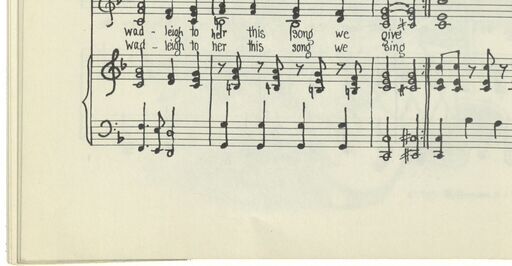 wad - leigh to her this song we give
wad - leigh to her this song we sing